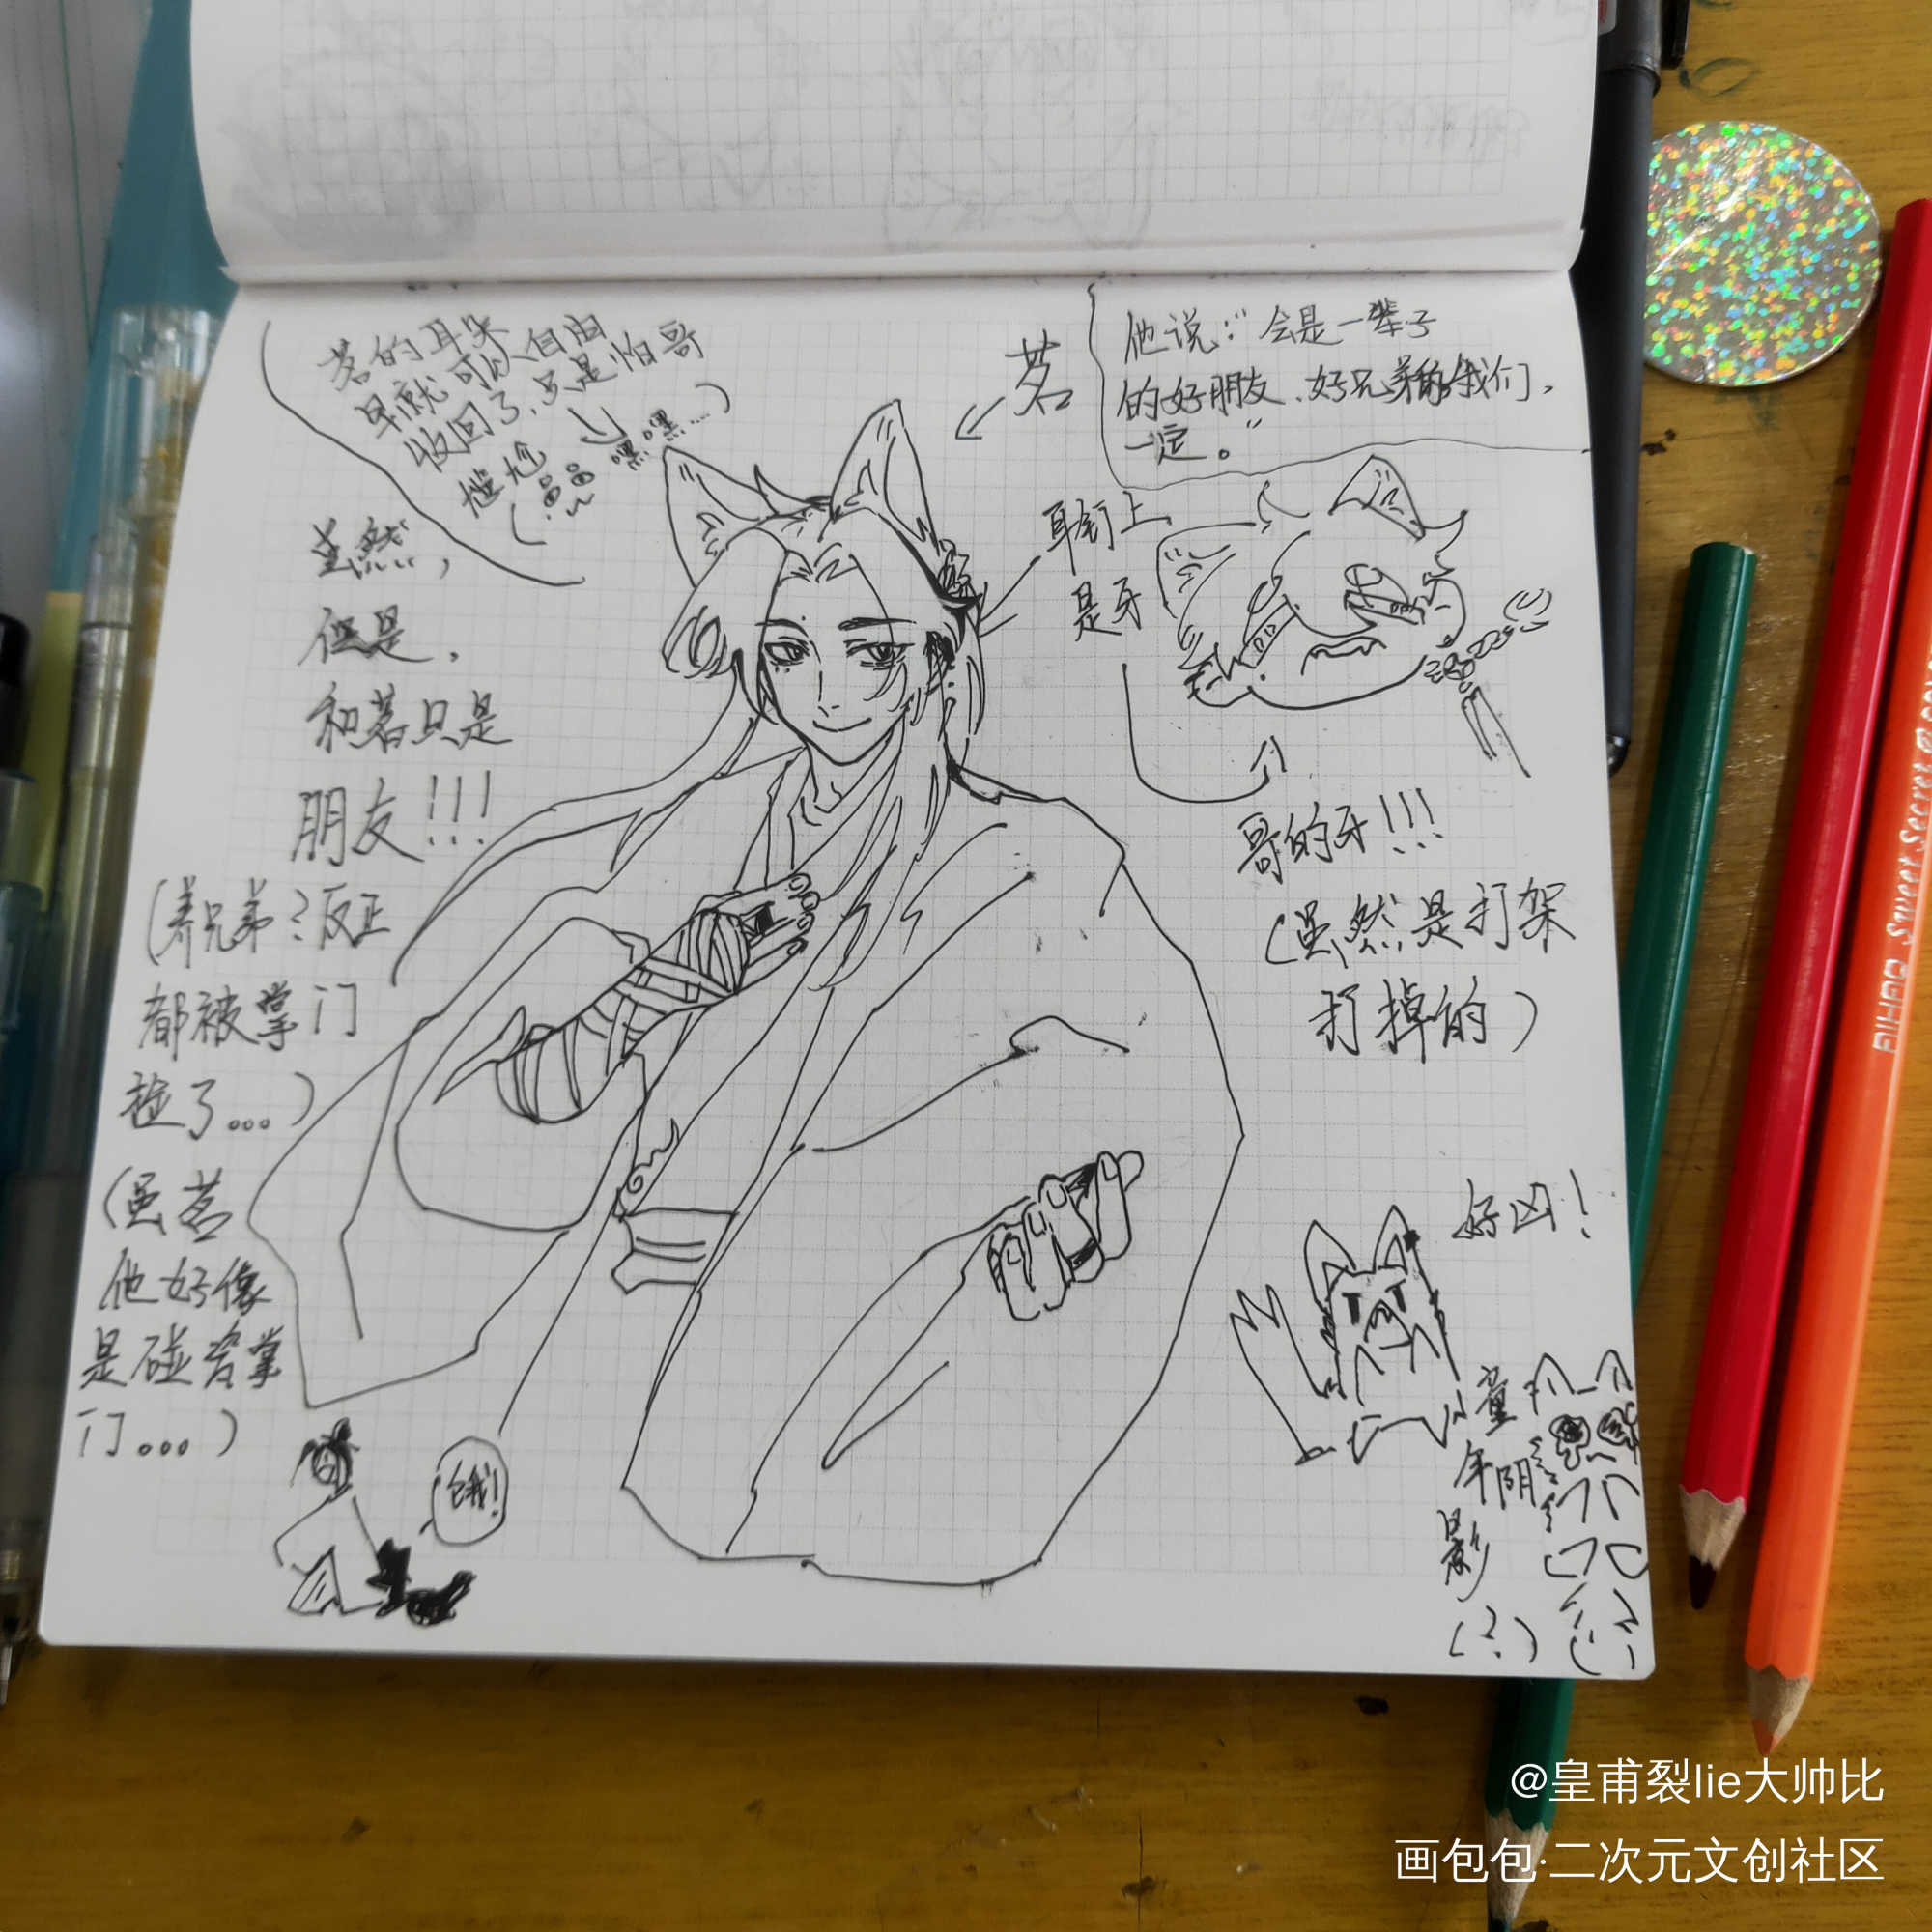 茗的耳朵
早就可以自由
收回了,只是怕哥
尴尬
嘿嘿...)
茗
他说:“会是一辈子
的好朋友、好兄弟的我们,
一定。”
虽然,
但是,
和茗只是
朋友!!!
(养兄弟?反正
都被掌门
捡了...)
(虽茗
他好像
是碰瓷掌
门...)
饿!
耳钉上
是牙
哥的牙!!!
(虽然是打架
打掉的)
好凶!
童
年阴
影
(?)
@皇甫裂lie大帅比
画包包·二次元文创社区
Sweet Secret